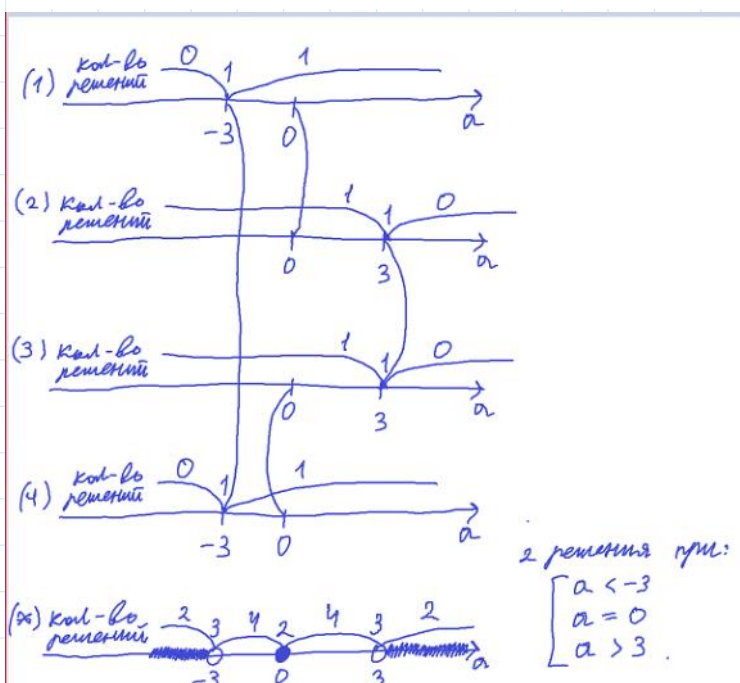 0 1 1
(1) кол-во решений
-3 0 a
(2) кол-во решений 1 1 0
0 3 a
(3) кол-во решений 1 1 0
0 3 a
(4) кол-во решений 0 1 1
-3 0 a
2 решения при:
a < -3
a = 0
a > 3.
(*) кол-во решений 2 3 4 2 4 3 2
-3 0 3 a